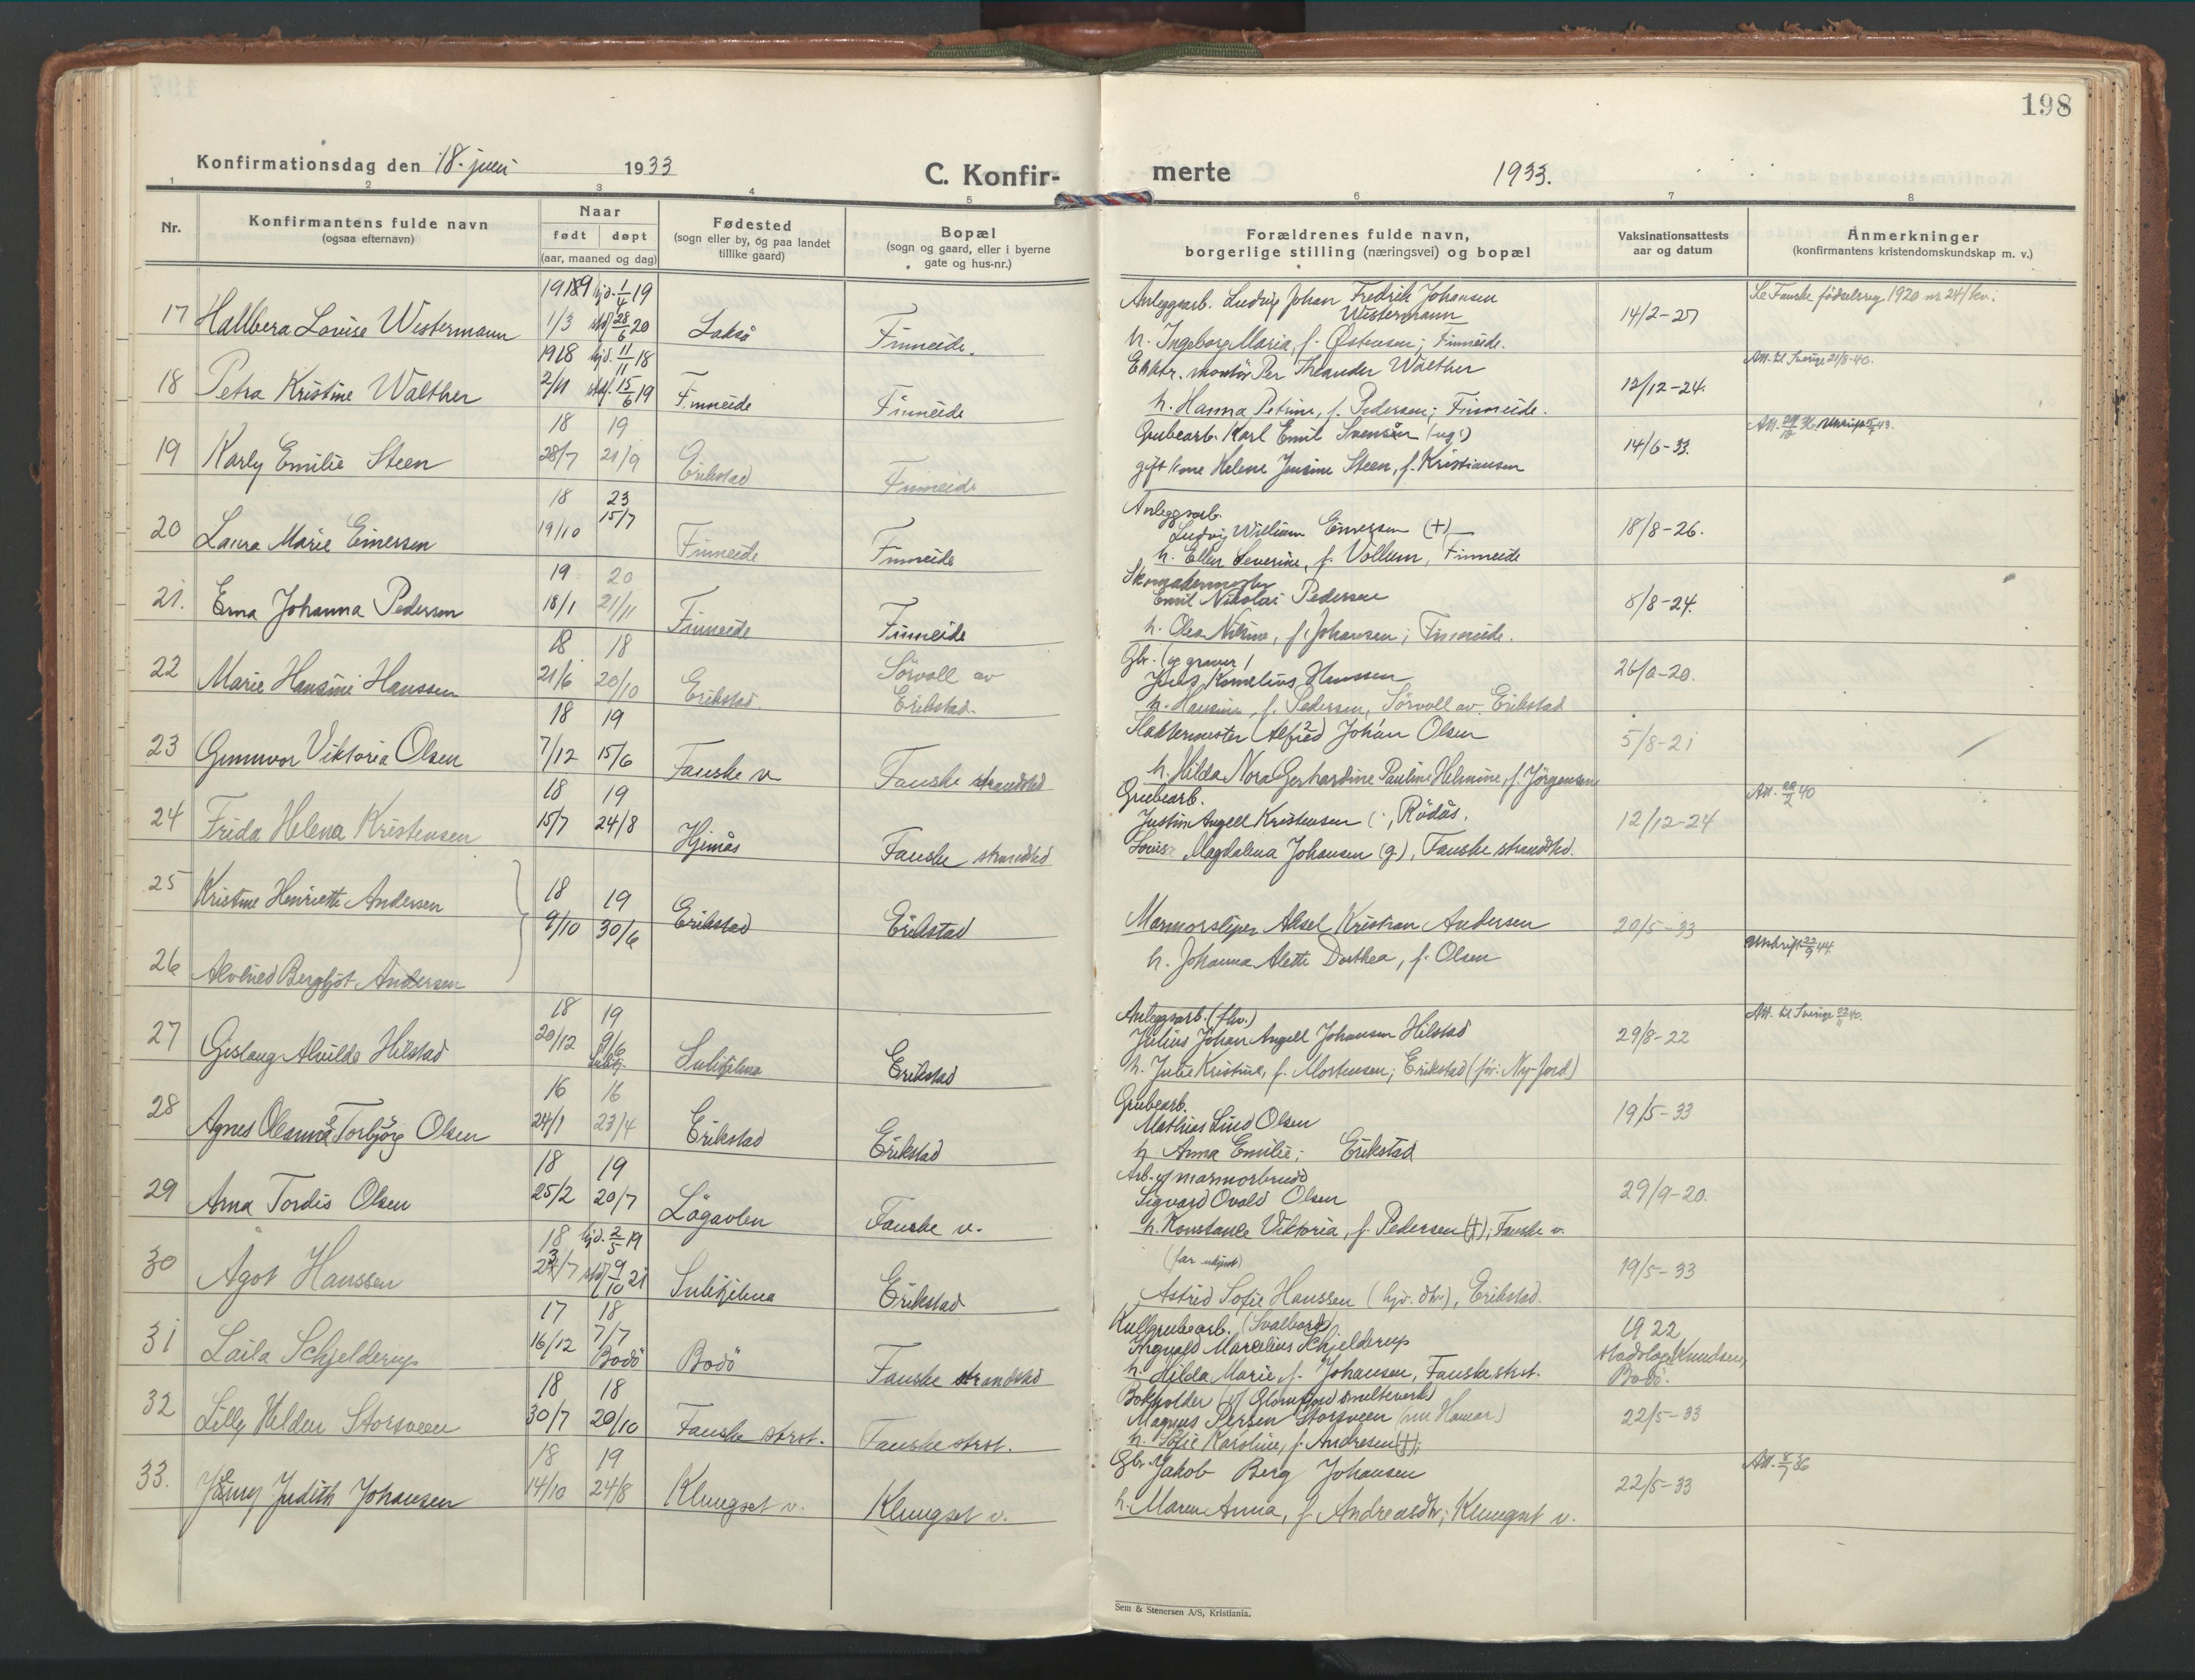 198
Konfirmationsdag den 18. juni 1933
C. Konfir-
merte
1933.
1 2 3 4 5 6 7 8
Nr.
Konfirmantens fulde navn
(ogsaa efternavn)
Naar
født døpt
(aar, maaned og dag)
Fødested
(sogn eller by, og paa landet
tillike gaard)
Bopæl
(sogn og gaard, eller i byerne
gate og hus-nr.)
Forældrenes fulde navn,
borgerlige stilling (næringsvei) og bopæl
Vaksinationsattests
aar og datum
Anmerkninger
(konfirmantens kristendomskundskap m. v.)
17 Hallbera Lovise Westermann
1919 hjd. 1/4 19
1/3 stadf. 28/6 20
Lakså
Finneide.
Anleggsarb. Ludvig Johan Fredrik Johansen
Westermann
h. Ingeborg Maria, f. Østensen; Finneide.
14/2-27
Se Fauske fødselsreg 1920 nr 24/kv.
18 Petra Kristine Walther
1918 hjd. 11/11 18
2/11 stadf. 15/6 19
Finneide
Finneide
Elektr. montör Per Theander Walther
h. Hanna Petrine, f. Pedersen; Finneide.
12/12-24.
Att. til Sverige 21/8-40.
19 Karly Emilie Steen
18 19
28/7 21/9
Erikstad
Finneide
Grubearb. Karl Emil Svensen (ug.)
gift kone Helene Jensine Steen, f. Kristiansen
14/6-33.
20 Laura Marie Einersen
18 23
19/10 15/7
Finneide
Finneide
Anleggsarb.
Ludvig William Einersen (+)
h. Ellen Severine, f. Vollum, Finneide
18/8-26.
21. Erna Johanna Pedersen
19 20
18/1 21/11
Finneide
Finneide
Skomakermester
Emil Nikolai Pedersen
h. Olea Nikine, f. Johansen; Finneide.
8/8-24.
22 Marie Hansine Hanssen
18 18
21/6 20/10
Erikstad.
Sörvoll av
Erikstad.
Gbr. (og graver)
Jens Kornelius Hanssen
h. Hansine, f. Pedersen, Sörvoll av Erikstad
26/8-20.
23 Gunnvor Viktoria Olsen
18 19
7/12 15/6
Fauske v
Fauske strandsted
Slaktermester Alfred Johan Olsen
h. Hilda Nora Gerhardine Pauline Helmine, f. Jörgensen
5/8-21
24 Frida Helena Kristensen
18 19
15/7 24/8
Hjemås
Fauske strandsted
Grubearb.
Justin Angell Kristensen, Rödås.
Lovise Magdalena Johansen (g.), Fauske strandsted.
12/12-24
Att. 20/2 40
25 Kristine Henriette Andersen
18 19
9/10 30/6
Erikstad
Erikstad
Marmorsliper Aksel Kristian Andersen
h. Johanna Alette Dorthea, f. Olsen
20/5-33
26 Alvhild Bergljot Andersen
Utskrift 27/9 44
27 Gislaug Alvilde Hilstad
18 19
20/12 9/6
Sulitj.
Sulitjelma
Erikstad
Anleggsarb. (fhv.)
Julius Johan Angell Johansen Hilstad
h. Julie Kristine, f. Mortensen; Erikstad (før: Ny-Jord)
29/8-22
Att. til Sverige 22/11 40.
28 Agnes Oleanna Torbjörg Olsen
16 16
24/1 23/4
Erikstad
Erikstad
Grubearb.
Mathias Lind Olsen
h. Anna Emilie; Erikstad
19/5-33
29 Arna Tordis Olsen
18 19
25/2 20/7
Lögavlen
Fauske v.
Arb. v/ marmorbrudd
Sigvard Ovald Olsen
h. Konstanse Viktoria, f. Pedersen (+); Fauske v.
29/9-20.
30 Ågot Hanssen
18 hjd. 2/5 19
23/7 stadf. 9/10 21
Sulitjelma
Erikstad
(far ukjent)
Astrid Sofie Hanssen (hjv. dtr.), Erikstad.
19/5-33
31 Laila Schjelderup
17 18
16/12 7/7
Bodö
Bodö
Fauske strandsted
Kullgrubearb. (Svalbard)
Ingvald Marcelius Schjelderup
h. Hilda Marie, f. Johansen, Fauske strst.
1922
stadslæge Knudsen,
Bodö.
32 Lilly Heldur Storsveen
18 18
30/7 20/10
Fauske strst.
Fauske strst.
Bokholder (v/ Glomfjord smelteverk)
Magnus Persen Storsveen (nu Hamar)
h. Sofie Karoline, f. Andresen (+);
22/5-33
33. Jenny Judith Johansen
18 19
14/10 24/8
Klungset v.
Klungset v.
Gbr. Jakob Berg Johansen
h. Maren Anna, f. Andreasdtr; Klungset v.
22/5-33
Sem & Stenersen A/S, Kristiania.